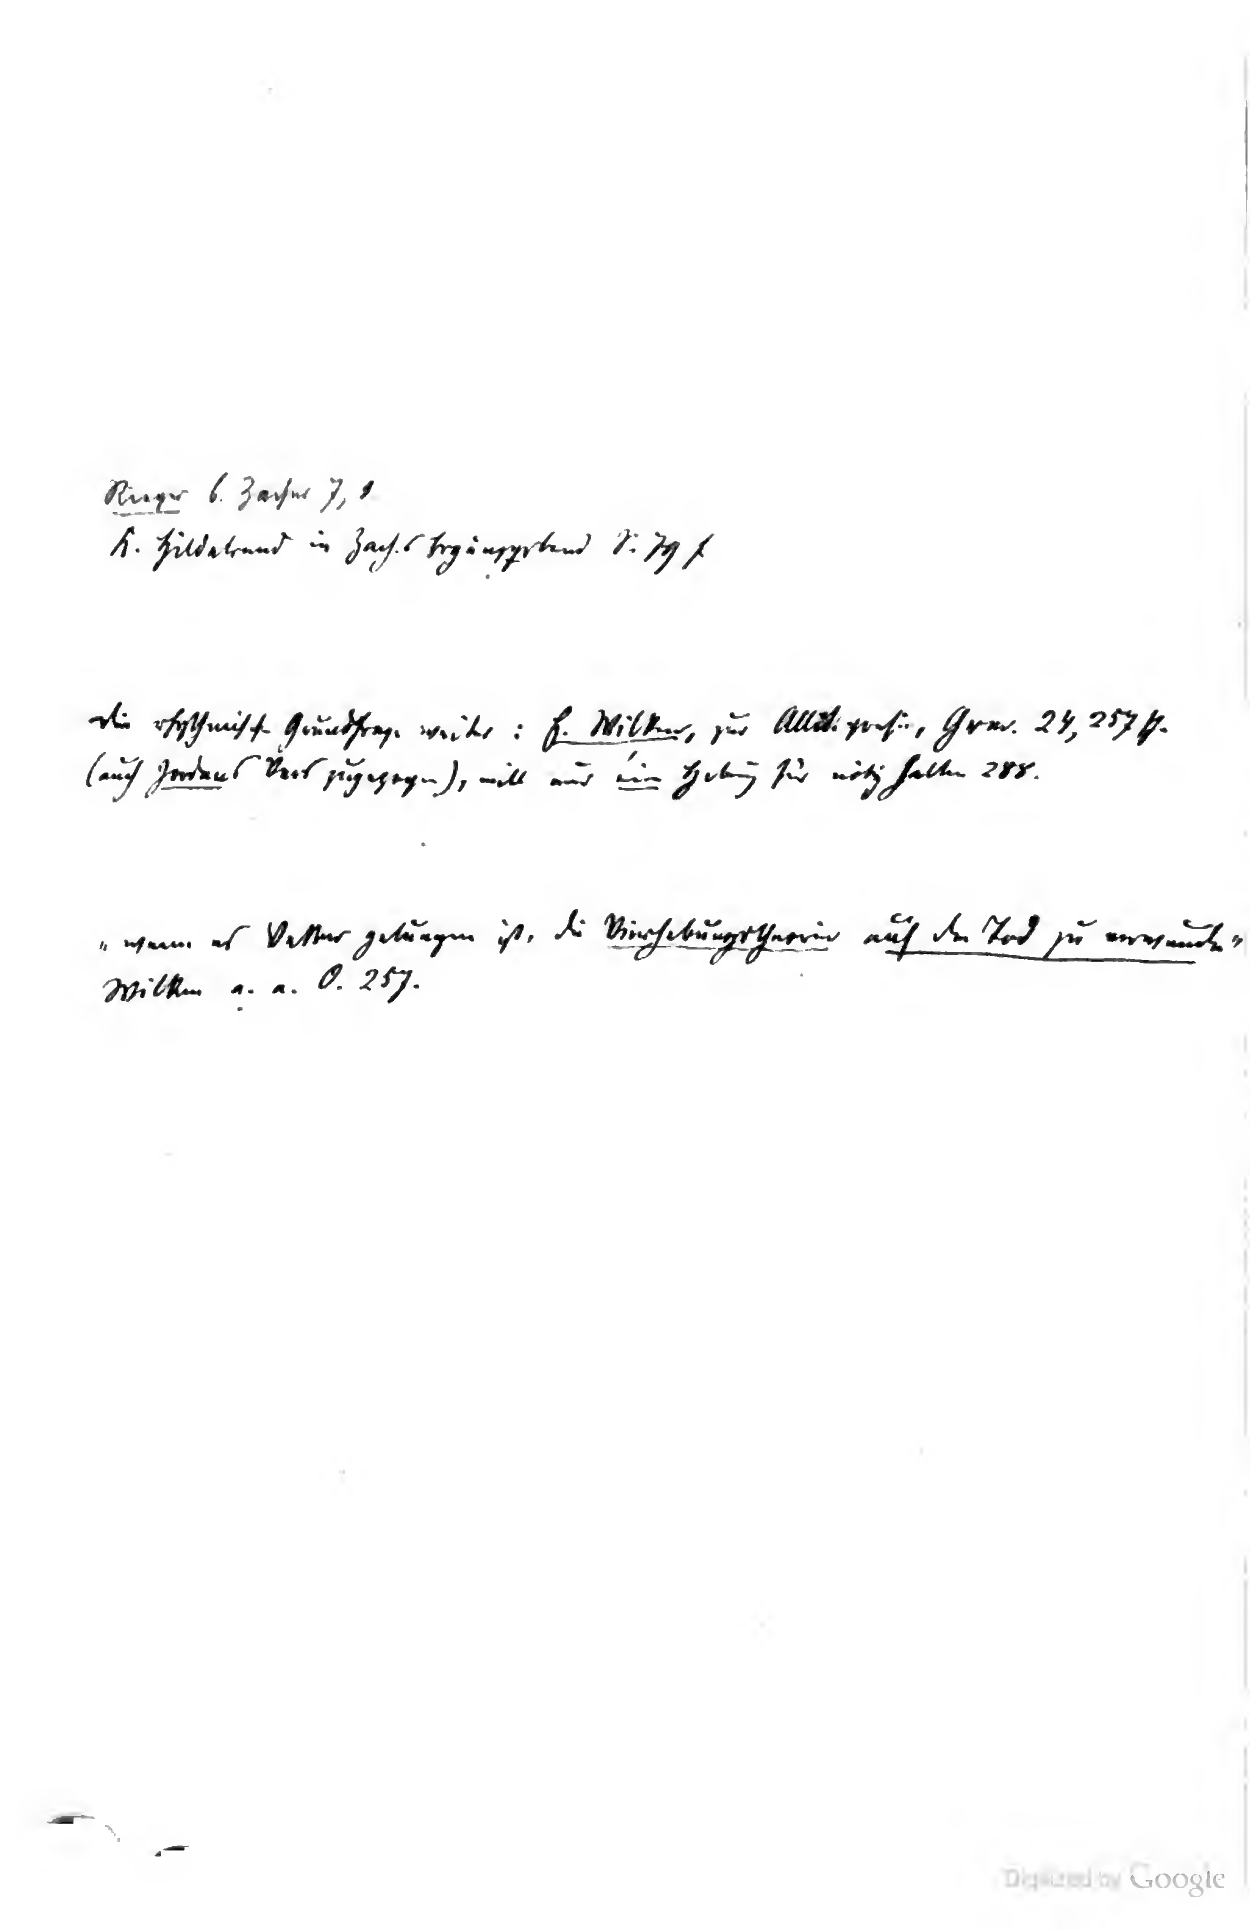 Rieger b. Zacher 7, 1
K. Hildebrand in Zach.s Ergänzgsband S. 79 f
Die rhythmische Grundfrage weiter: E. Wilken, zur Allit.poesie, Germ. 24, 257 ff.
(auch Jordans Vers zugezogen), will nur ein Hebung für nötig halten 288.
„wenn es Vetter gelungen ist, die Vierhebungstheorie auf den Tod zu verwunden“
Wilken a. a. O. 257.
Digitized by Google